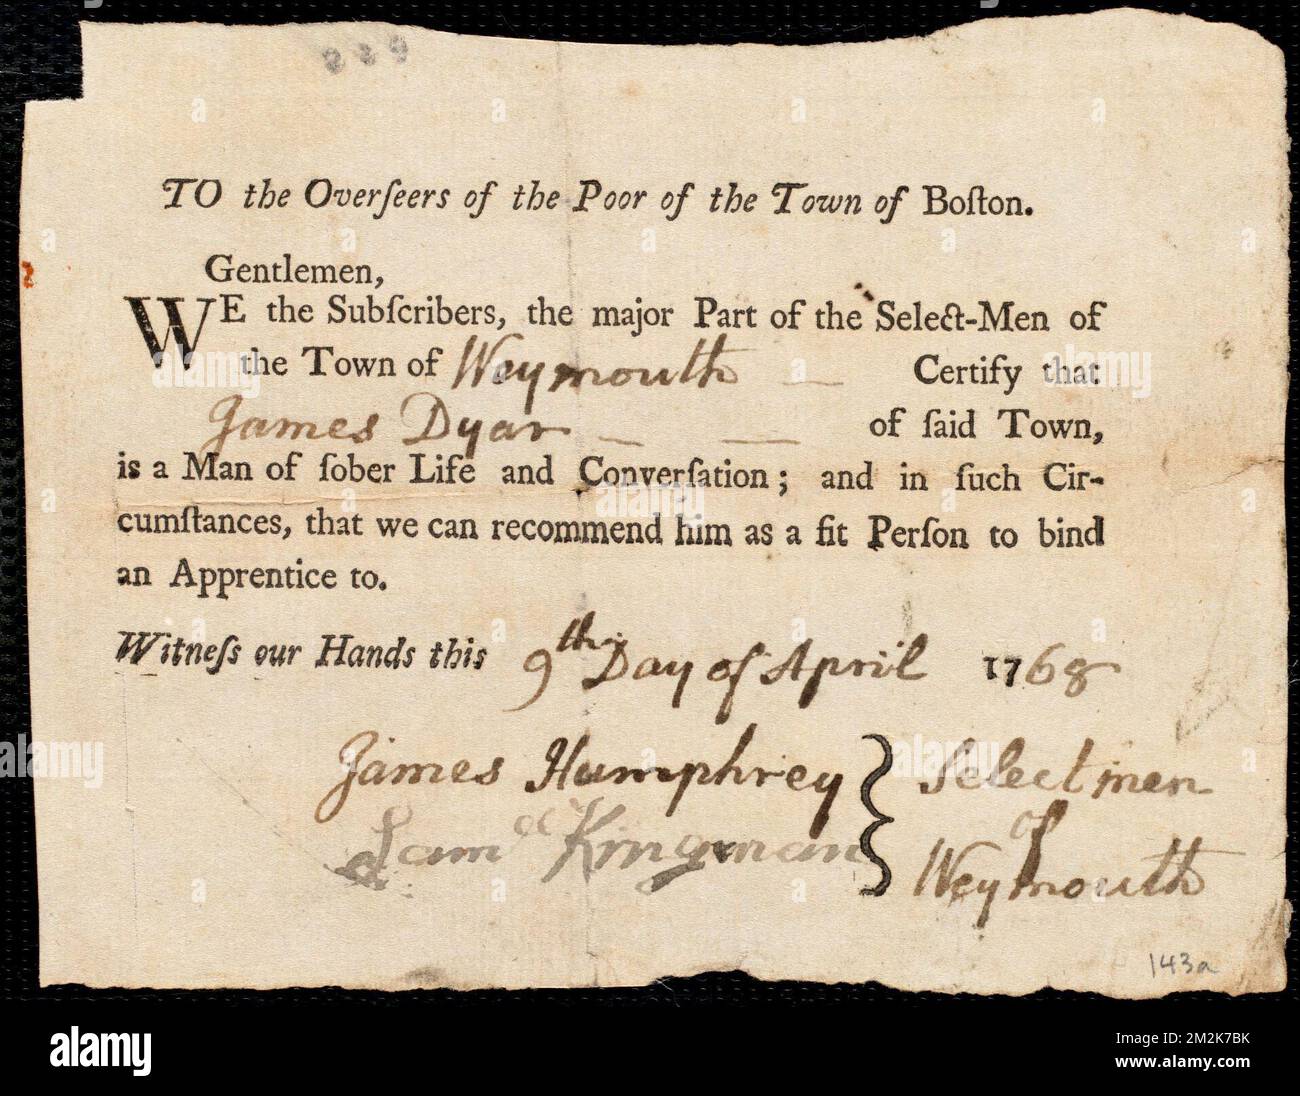 TO the Overſeers of the Poor of the Town of Boſton.
Gentlemen,
WE the Subſcribers, the major Part of the Select-Men of
the Town of Weymouth — Certify that
James Dyar — — of ſaid Town,
is a Man of ſober Life and Converſation; and in ſuch Cir-
cumſtances, that we can recommend him as a fit Perſon to bind
an Apprentice to.
Witneſs our Hands this 9th Day of April 1768
James Humphrey } Selectmen
Samll Kingman of
Weymouth
143a
alamy
Image ID: 2M2K7BK
www.alamy.com